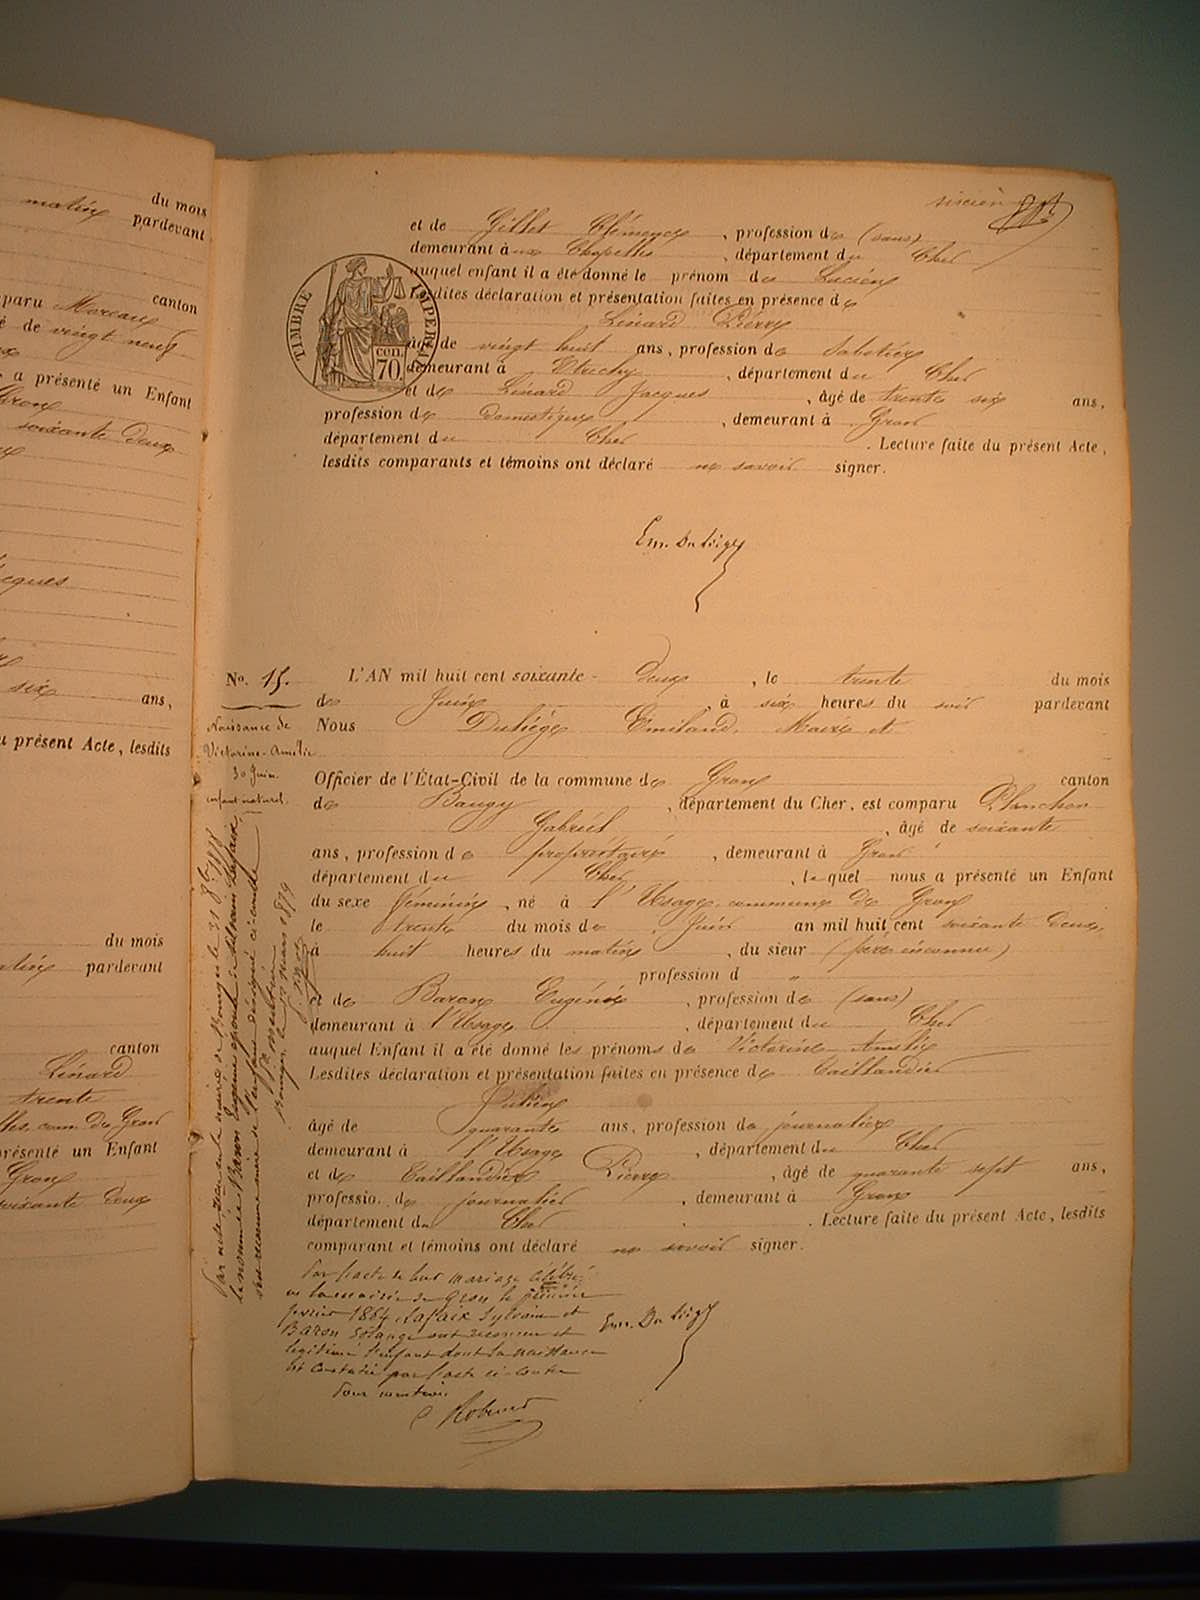 du mois
matin pardevant
canton
paru Moreau
é de vingt neuf
, a présenté un Enfant
Gron
soixante deux
acques
six ans,
u présent Acte, lesdits
du mois
matin pardevant
canton
Linard
trente
lles, com. de Gron
présenté un Enfant
Gron
soixante deux
sixième
et de Gillet Clémence, profession de (sans)
demeurant aux Chapelles, département du Cher
auquel enfant il a été donné le prénom de Lucien
Lesdites déclaration et présentation faites en présence de
TIMBRE IMPERIAL
70 cen.
Linard Pierre
âgé de vingt huit ans, profession de Sabotier
demeurant à Etrechy, département du Cher
et de Linard Jacques, âgé de trente six ans,
profession de domestique, demeurant à Gron
département du Cher. Lecture faite du présent Acte,
lesdits comparants et témoins ont déclaré ne savoir signer.
Em. Duliège
No. 15.
Naissance de
Victorine-Amélie
30 Juin.
enfant naturel.
L'AN mil huit cent soixante-deux, le trente du mois
de Juin, à six heures du soir pardevant
Nous Duliège Emiland, Maire et
Officier de l'État-Civil de la commune de Gron canton
de Baugy, département du Cher, est comparu Planchon
Gabriel, âgé de soixante
ans, profession de propriétaire, demeurant à Gron
département du Cher, lequel nous a présenté un Enfant
du sexe féminin, né à l'Usage, commune de Gron
le trente du mois de Juin an mil huit cent soixante deux,
à huit heures du matin, du sieur (père inconnu)
profession d "
et de Baron Eugénie, profession de (sans)
demeurant à l'Usage, département du Cher
auquel Enfant il a été donné les prénoms de Victorine-Amélie
Lesdites déclaration et présentation faites en présence de Taillandier
âgé de quarante ans, profession de journalier
demeurant à l'Usage, département du Cher
et de Taillandier Pierre, âgé de quarante sept ans,
profession de journalier, demeurant à Gron
département du Cher. Lecture faite du présent Acte, lesdits
comparant et témoins ont déclaré ne savoir signer.
Par l'acte de leur mariage célébré
en la mairie de Gron le
février 1864, Lafaix Sylvain et
Baron Solange ont reconnu et
légitimé l'enfant dont la naissance
est constatée par l'acte ci-contre
Pour mention
Em. Duliège
Par acte reçu en la mairie de Bourges le 31 8bre 1878
la nommée Baron Eugénie épouse de Silvain Lafaix
s'est reconnue mère de l'enfant désigné ci-contre
Pr. mention
Bourges, le mars 1879